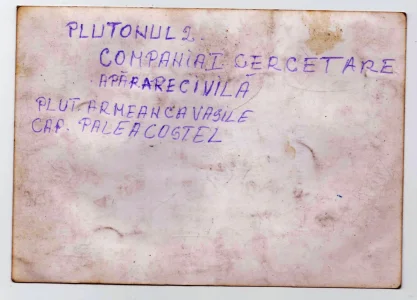 PLUTONUL 2
COMPANIA I CERCETARE
APĂRARE CIVILĂ
PLUT. ARMEANCA VASILE
CAP. PALEA COSTEL